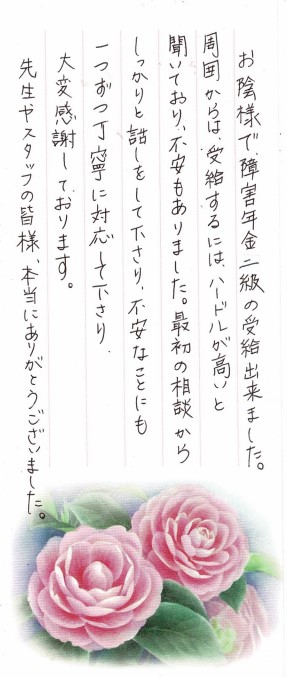 お陰様で、障害年金二級の受給出来ました。
周囲からは、受給するには、ハードルが高いと
聞いており、不安もありました。最初の相談から
しっかりと話しをして下さり、不安なことにも
一つずつ丁寧に対応して下さり、
大変感謝しております。
先生やスタッフの皆様、本当にありがとうございました。